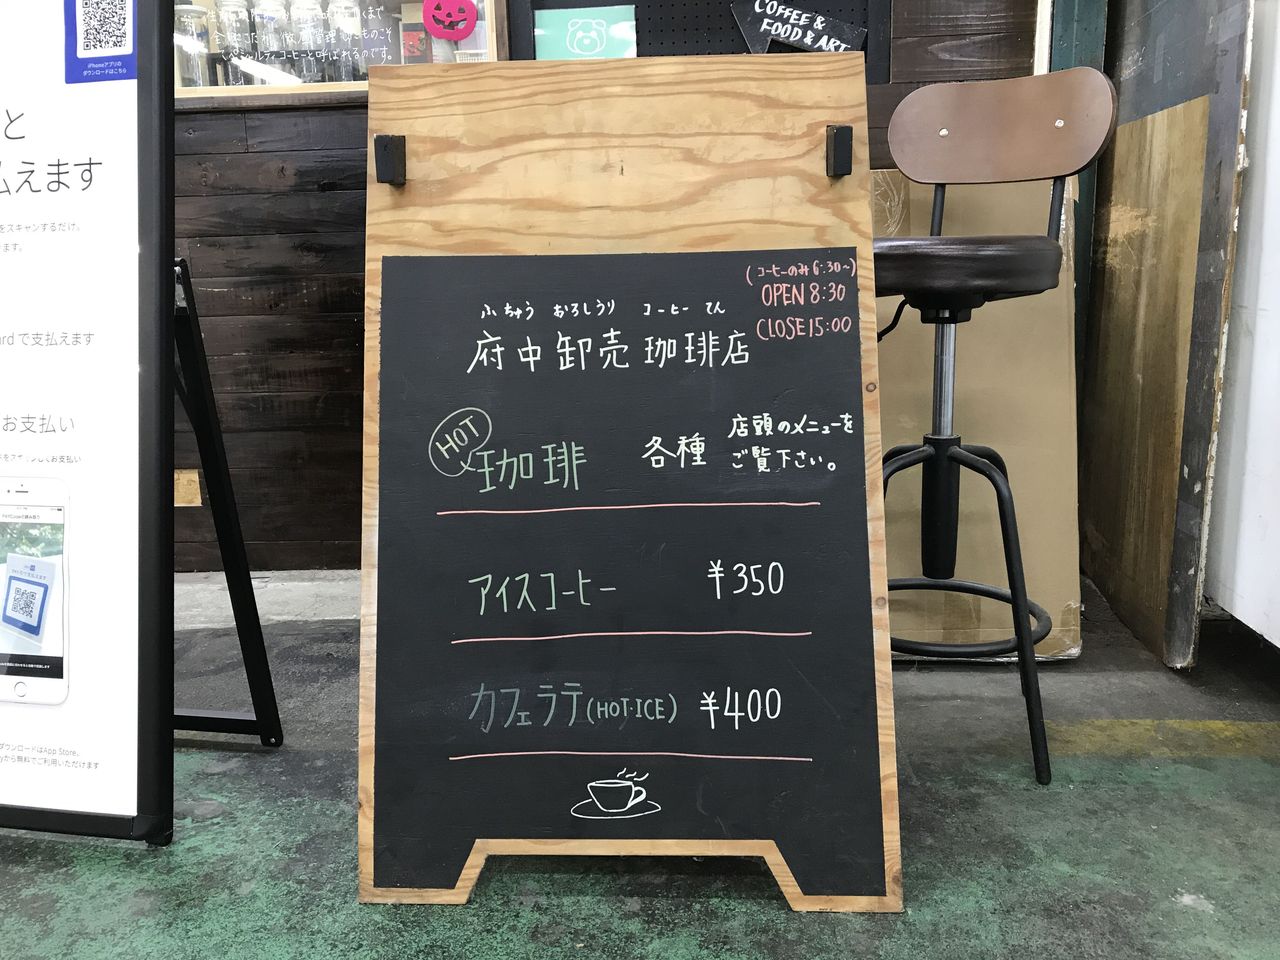 iPhoneアプリの
ダウンロードはこちら
と
払えます
をスキャンするだけ。
ます。
ardで支払えます
お支払い
ダウンロードはApp Store、
yから無料でご利用いただけます
COFFEE &
FOOD & ART
(コーヒーのみ6:30~)
OPEN 8:30
CLOSE 15:00
ふちゅう おろしうり コーヒー てん
府中卸売 珈琲店
HOT
珈琲 各種 店頭のメニューを
ご覧下さい。
アイスコーヒー ¥350
カフェラテ(HOT・ICE) ¥400